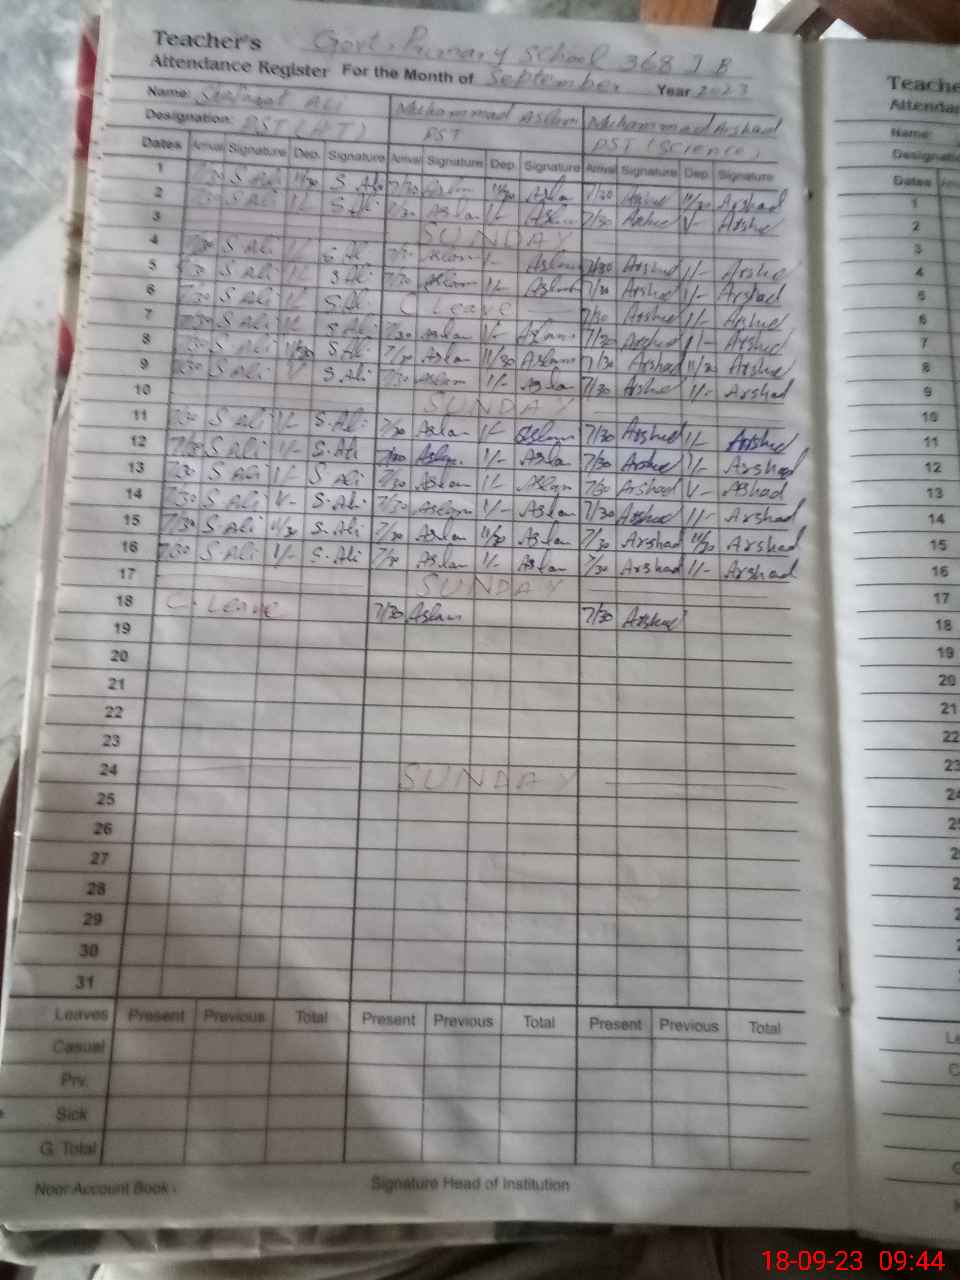 Teacher's Govt. Primary School 368 J B
Attendance Register For the Month of September Year 2023
Name: Shafaqat Ali Muhammad Aslam Muhammad Arshad
Designation: PST (H.T) PST PST (Science)
Dates Arrival Signature Dep. Signature Arrival Signature Dep. Signature Arrival Signature Dep. Signature
1 S Ali 11/30 S. Ali 7/30 Aslam 11/30 Aslam 7/30 Arshad 11/30 Arshad
2 S Ali 1/- S. Ali 7/30 Aslam 1/- Aslam 7/30 Arshad 1/- Arshad
3 SUNDAY
4 7/30 S Ali 1/- S Ali 7/30 Aslam 1/- Aslam 7/30 Arshad 1/- Arshad
5 7/30 S Ali 1/- S Ali 7/30 Aslam 1/- Aslam 7/30 Arshad 1/- Arshad
6 7/30 S Ali 1/- S. Ali C Leave 7/30 Arshad 1/- Arshad
7 7/30 S Ali 1/- S Ali 7/30 Aslam 1/- Aslam 7/30 Arshad 1/- Arshad
8 7/30 S Ali 11/30 S. Ali 7/30 Aslam 11/30 Aslam 7/30 Arshad 11/30 Arshad
9 7/30 S Ali 1/- S. Ali 7/30 Aslam 1/- Aslam 7/30 Arshad 1/- Arshad
10 SUNDAY
11 7/30 S Ali 1/- S. Ali 7/30 Aslam 1/- Aslam 7/30 Arshad 1/- Arshad
12 7/30 S Ali 1/- S. Ali 7/30 Aslam 1/- Aslam 7/30 Arshad 1/- Arshad
13 7/30 S Ali 1/- S Ali 7/30 Aslam 1/- Aslam 7/30 Arshad 1/- Arshad
14 7/30 S Ali 1/- S. Ali 7/30 Aslam 1/- Aslam 7/30 Arshad 1/- Arshad
15 7/30 S. Ali 11/30 S. Ali 7/30 Aslam 11/30 Aslam 7/30 Arshad 11/30 Arshad
16 7/30 S Ali 1/- S. Ali 7/30 Aslam 1/- Aslam 7/30 Arshad 1/- Arshad
17 SUNDAY
18 C. Leave 7/30 Aslam 7/30 Arshad
19
20
21
22
23
24 SUNDAY
25
26
27
28
29
30
31
Leaves Present Previous Total Present Previous Total Present Previous Total
Casual
Prv.
Sick
G. Total
Noor Account Book. Signature Head of Institution
Name:
Dates
1
2
3
4
5
6
7
8
9
10
11
12
13
14
15
16
17
18
19
20
21
22
23
18-09-23 09:44